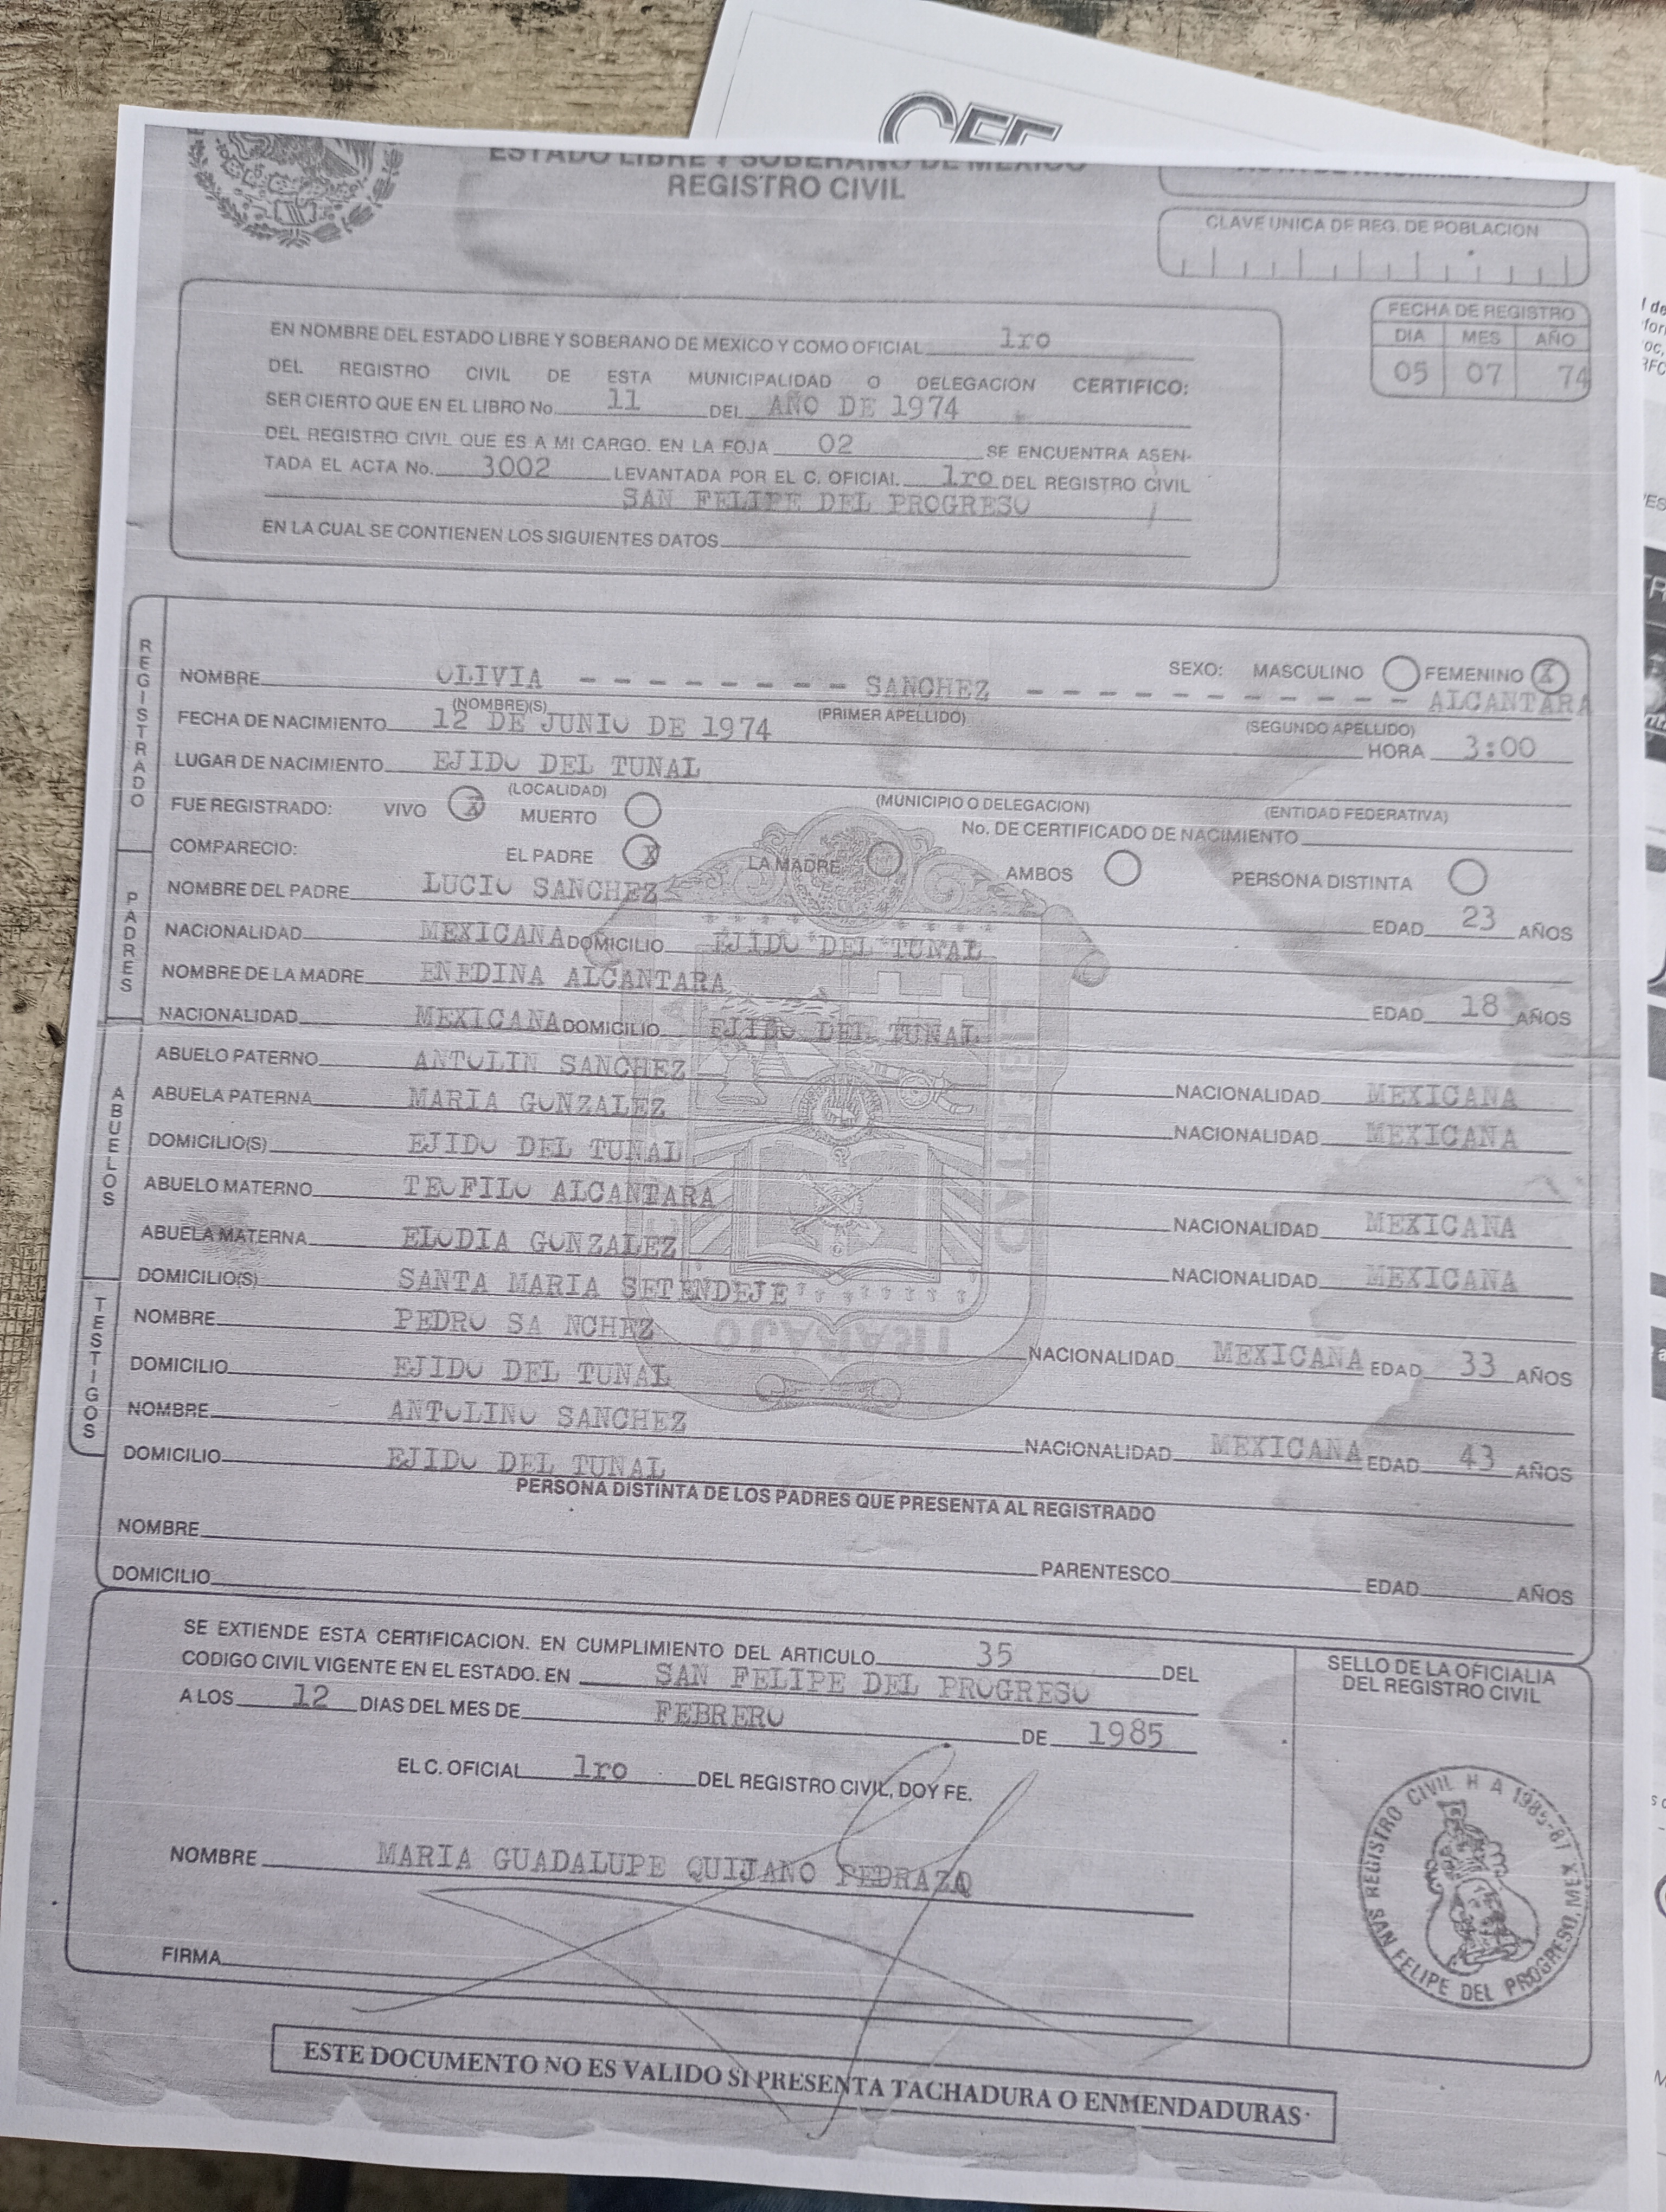 CFE
ESTADO LIBRE Y SOBERANO DE MEXICO
REGISTRO CIVIL
CLAVE UNICA DE REG. DE POBLACION
FECHA DE REGISTRO
DIA MES AÑO
05 07 74
EN NOMBRE DEL ESTADO LIBRE Y SOBERANO DE MEXICO Y COMO OFICIAL 1ro
DEL REGISTRO CIVIL DE ESTA MUNICIPALIDAD O DELEGACION CERTIFICO:
SER CIERTO QUE EN EL LIBRO No. 11 DEL AÑO DE 1974
DEL REGISTRO CIVIL QUE ES A MI CARGO. EN LA FOJA 02 SE ENCUENTRA ASEN-
TADA EL ACTA No. 3002 LEVANTADA POR EL C. OFICIAL. 1ro DEL REGISTRO CIVIL
SAN FELIPE DEL PROGRESO
EN LA CUAL SE CONTIENEN LOS SIGUIENTES DATOS
REGISTRADO
SEXO: MASCULINO FEMENINO X
NOMBRE OLIVIA - - - - - - - - - SANCHEZ - - - - - - - - - - - - ALCANTARA
(NOMBRE)(S) (PRIMER APELLIDO) (SEGUNDO APELLIDO)
FECHA DE NACIMIENTO 12 DE JUNIO DE 1974 HORA 3:00
LUGAR DE NACIMIENTO EJIDO DEL TUNAL
(LOCALIDAD) (MUNICIPIO O DELEGACION) (ENTIDAD FEDERATIVA)
FUE REGISTRADO: VIVO X MUERTO No. DE CERTIFICADO DE NACIMIENTO
COMPARECIO: EL PADRE X LA MADRE AMBOS PERSONA DISTINTA
PADRES
NOMBRE DEL PADRE LUCIO SANCHEZ EDAD 23 AÑOS
NACIONALIDAD MEXICANA DOMICILIO EJIDO DEL TUNAL
NOMBRE DE LA MADRE ENEDINA ALCANTARA EDAD 18 AÑOS
NACIONALIDAD MEXICANA DOMICILIO EJIDO DEL TUNAL
ABUELOS
ABUELO PATERNO ANTOLIN SANCHEZ NACIONALIDAD MEXICANA
ABUELA PATERNA MARIA GONZALEZ NACIONALIDAD MEXICANA
DOMICILIO(S) EJIDO DEL TUNAL
ABUELO MATERNO TEOFILO ALCANTARA NACIONALIDAD MEXICANA
ABUELA MATERNA ELODIA GONZALEZ NACIONALIDAD MEXICANA
DOMICILIO(S) SANTA MARIA SETENDEJE
TESTIGOS
NOMBRE PEDRO SA NCHEZ NACIONALIDAD MEXICANA EDAD 33 AÑOS
DOMICILIO EJIDO DEL TUNAL
NOMBRE ANTOLINO SANCHEZ NACIONALIDAD MEXICANA EDAD 43 AÑOS
DOMICILIO EJIDO DEL TUNAL
PERSONA DISTINTA DE LOS PADRES QUE PRESENTA AL REGISTRADO
NOMBRE PARENTESCO EDAD AÑOS
DOMICILIO
LIBERTAD
TRABAJO
SE EXTIENDE ESTA CERTIFICACION. EN CUMPLIMIENTO DEL ARTICULO 35 DEL
CODIGO CIVIL VIGENTE EN EL ESTADO. EN SAN FELIPE DEL PROGRESO
A LOS 12 DIAS DEL MES DE FEBRERO DE 1985
EL C. OFICIAL 1ro DEL REGISTRO CIVIL, DOY FE.
NOMBRE MARIA GUADALUPE QUIJANO PEDRAZA
FIRMA
SELLO DE LA OFICIALIA
DEL REGISTRO CIVIL
REGISTRO CIVIL H A 1985-87
SAN FELIPE DEL PROGRESO, MEX
ESTE DOCUMENTO NO ES VALIDO SI PRESENTA TACHADURA O ENMENDADURAS.